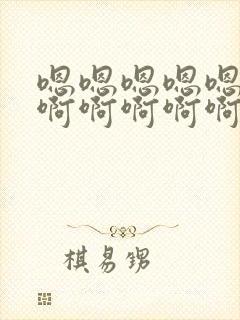 嗯嗯嗯嗯嗯
啊啊啊啊啊
棋易甥